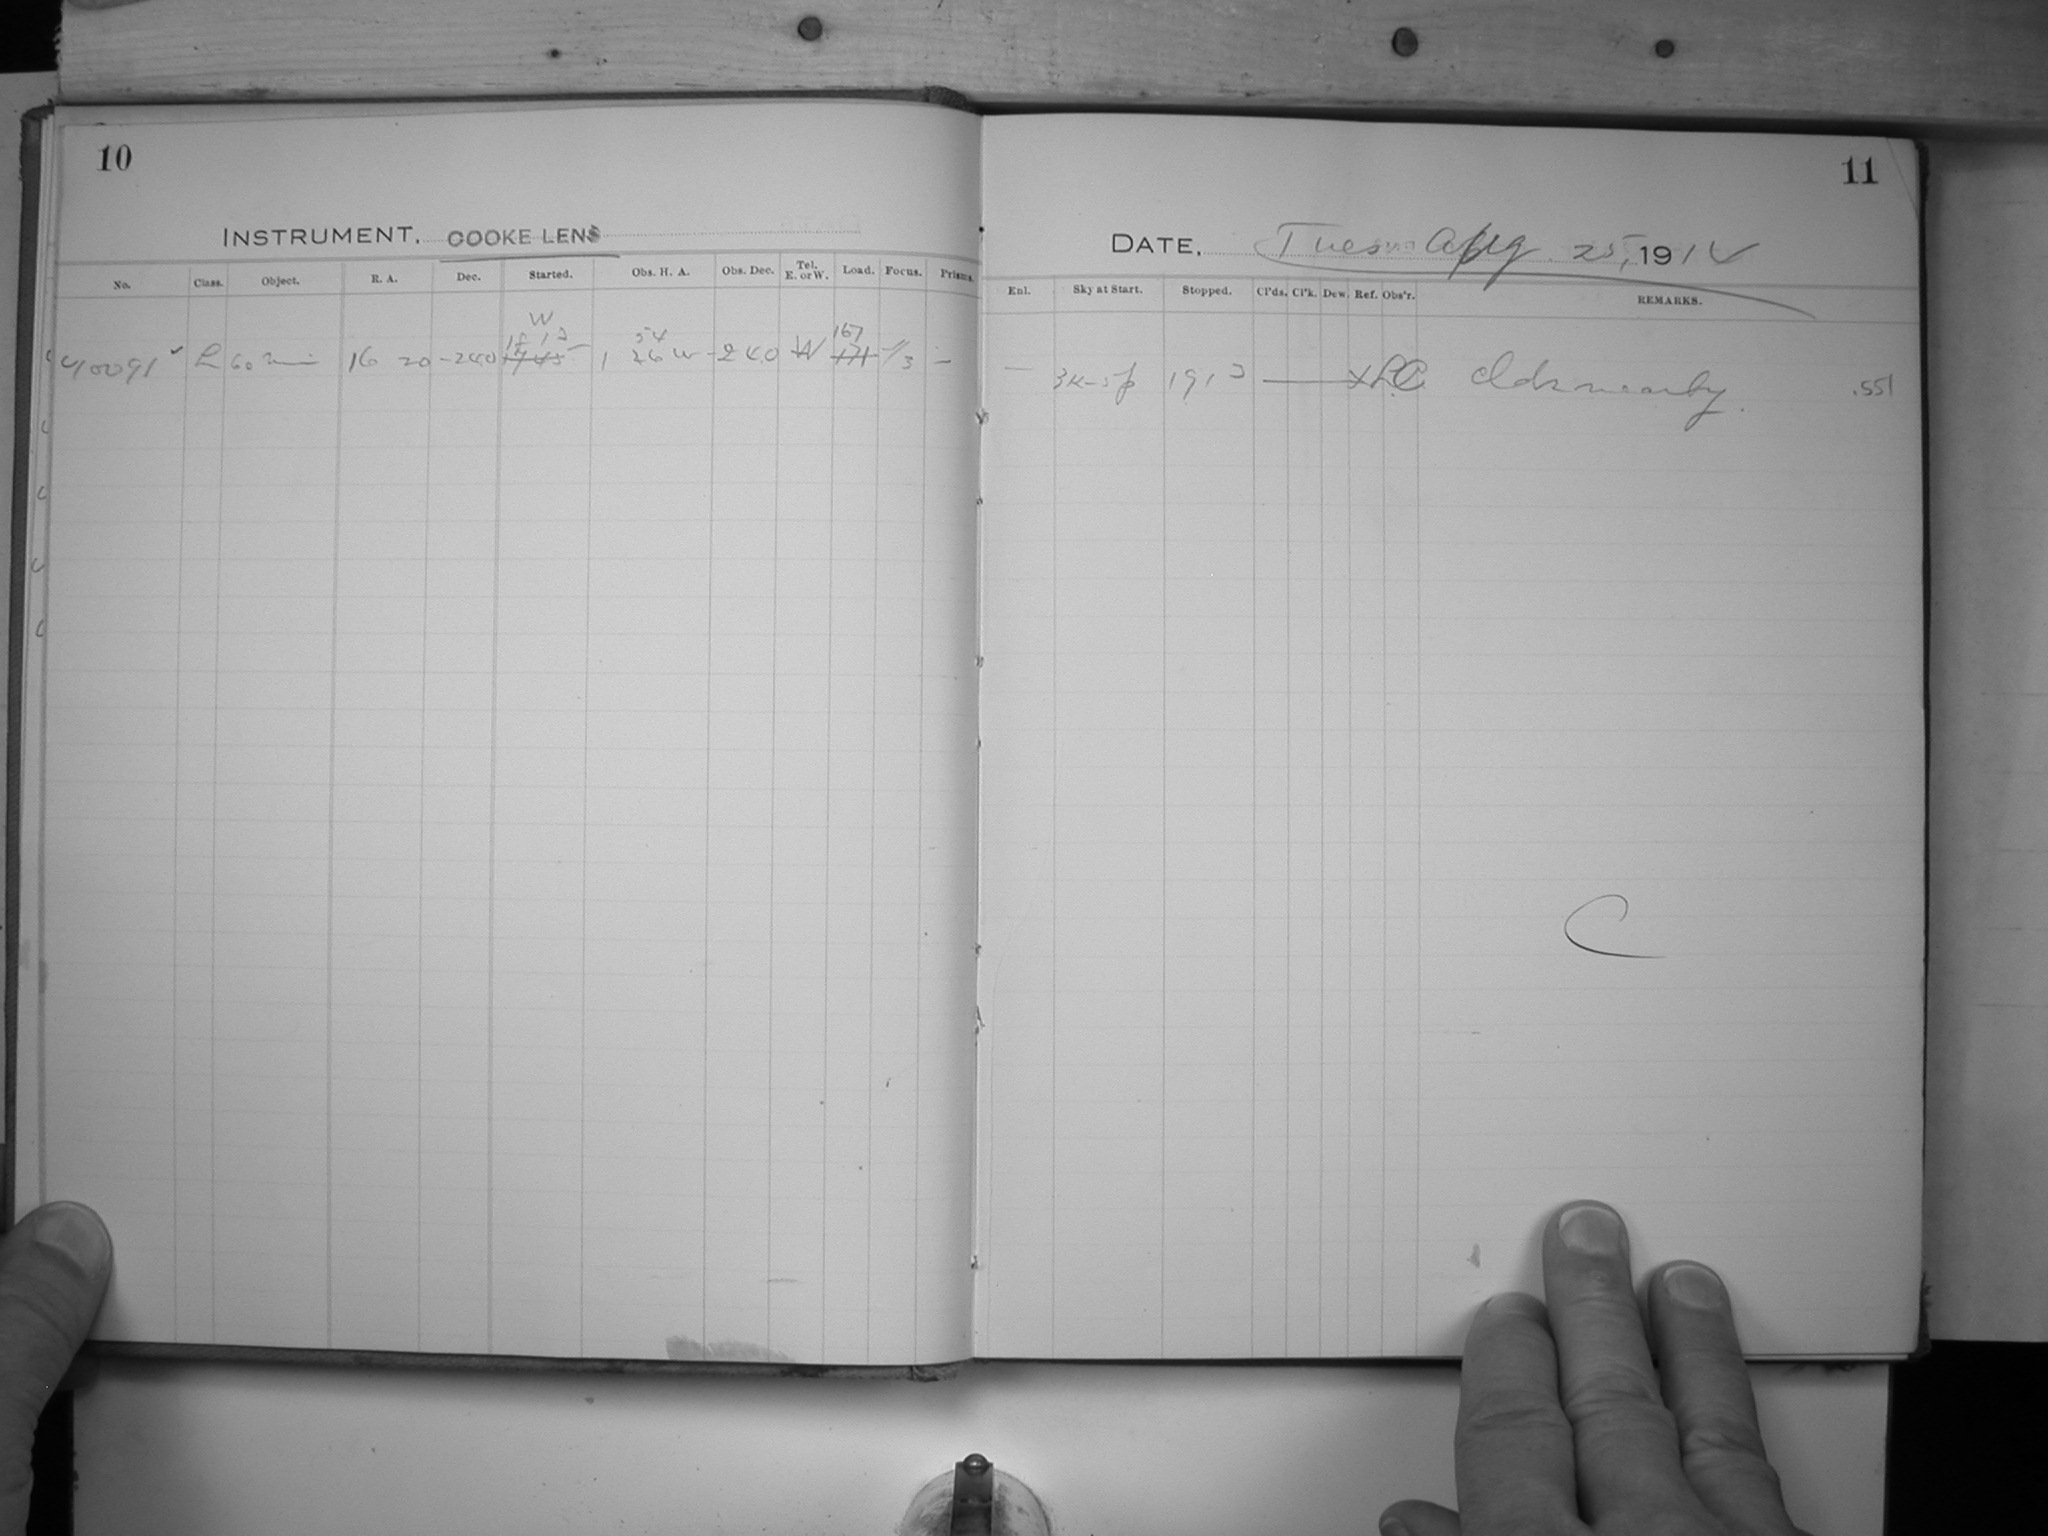 10
INSTRUMENT. COOKE LENS
No. Class. Object. R. A. Dec. Started. Obs. H. A. Obs. Dec. Tel. E. or W. Load. Focus. Prisms.
W
54 167
60 min 16 20 -240 1 26 W -240 W 171 -
11
DATE, Tues Aug 25, 1914
Enl. Sky at Start. Stopped. Cl'ds. Cl'k. Dew. Ref. Obs'r. REMARKS.
- 19 12 Clds nearby. .551
C